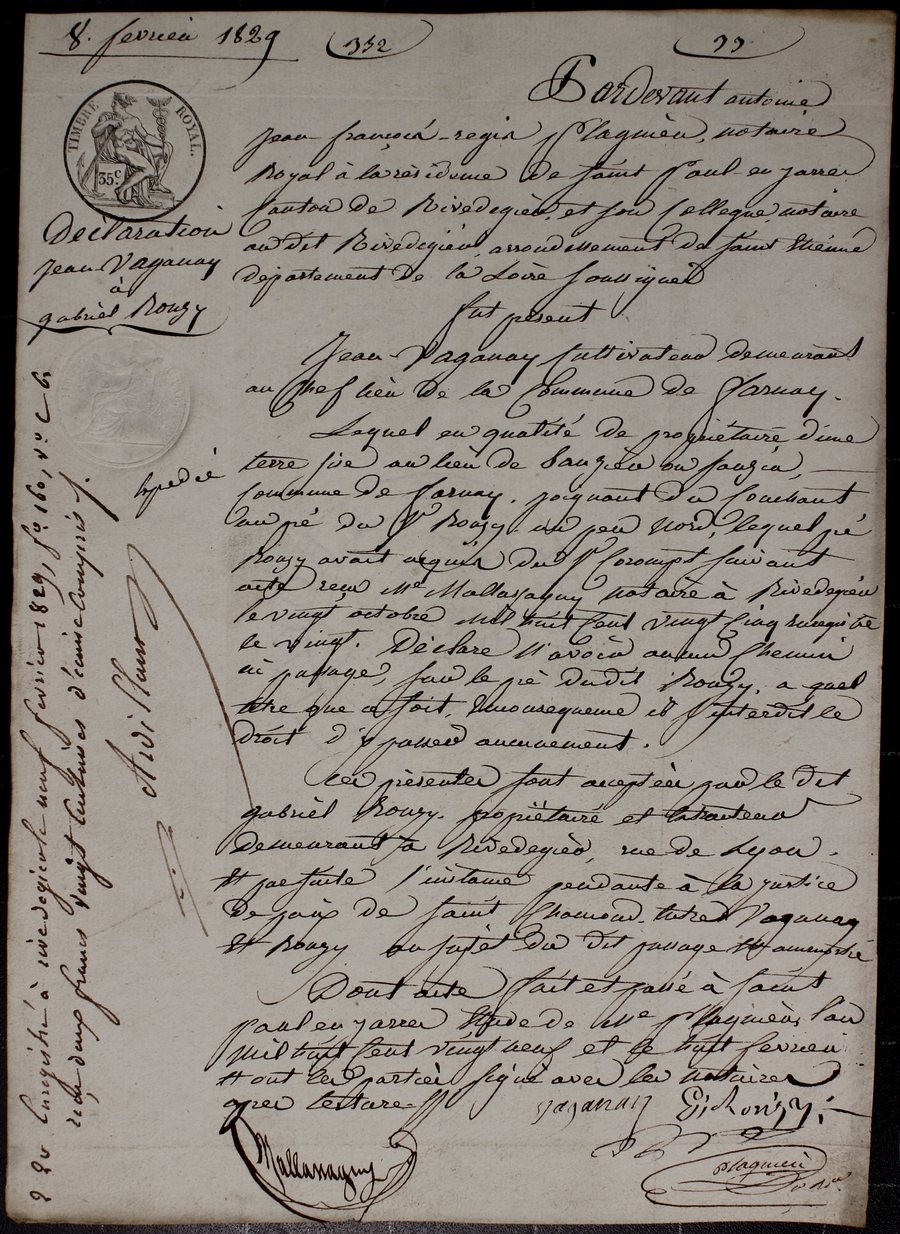 8. fevrier 1829
352
33
TIMBRE ROYAL.
35 c.
Déclaration
Jean Vaganay
à
gabriël Rouzy
Expedié
Pardevant antoine
Jean-françois-regis Plagnieu, notaire
Royal à la résidence de saint Paul-en-jarrer
Canton de Rivedegier, et son Collegue notaire
audit Rivedegier, arrondissement de saint Etienne
departement de la Loire soussignés
fut présent
Jean Vaganay Cultivateur demeurant
au chef lieu de la Commune de farnay.
Lequel en qualité de propriétaire d'une
terre sise au lieu de
Commune de farnay, joignant du Couchant
au pré du Sr Rouzy un peu Nord, lequel pré
Rouzy avait acquis du Sr Corompt suivant
acte reçu Me Mallassagny notaire à Rivedegier
le vingt octobre Mil huit Cent vingt Cinq enregistré
le vingt. Déclare N'avoir aucun Chemin
ni passage, sur le pré dudit Rouzy, a quel
titre que ce soit, Enconsequence il s'interdit le
droit d'y passer aucunement.
Ces présentes sont acceptées par le dit
gabriël Rouzy, propriétaire et
Demeurant à Rivedegier, rue de Lyon.
Et par suite l'instance pendante à la justice
De paix de saint Chamond, Entre Vaganay
Et Rouzy au sujet du dit passage Est
Dont acte fait et passé à saint
Paul en jarrer Etude de Me Plagnieu, l'an
Mil huit Cent vingt neuf et le huit fevrier
Et ont les parties signé avec les notaires
apres lecture
Vaganay G. Rouzy
Mallassagny
Plagnieu
Enregistré à rivedegier le neuf fevrier 1829, fo 160, vo C 6.
reçu deux francs vingt centimes dixième compris.